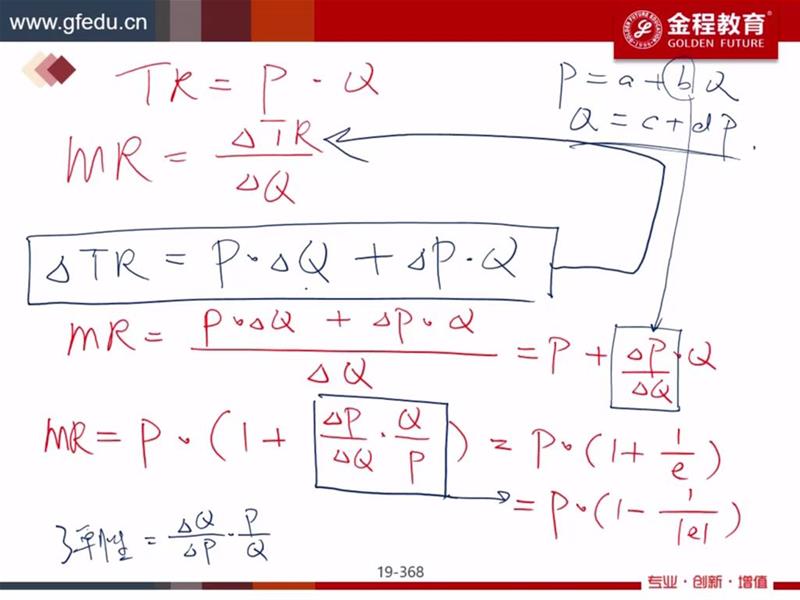 www.gfedu.cn
金程教育
GOLDEN FUTURE
TR = P · Q
P = a + bQ
Q = c + dP.
MR = ΔTR/ΔQ
ΔTR = P·ΔQ + ΔP·Q
MR = (P·ΔQ + ΔP·Q)/ΔQ = P + ΔP/ΔQ·Q
MR = P·(1 + ΔP/ΔQ·Q/P) = P·(1 + 1/e)
= P·(1 − 1/|e|)
弹性 = ΔQ/ΔP·P/Q
19-368
专业·创新·增值